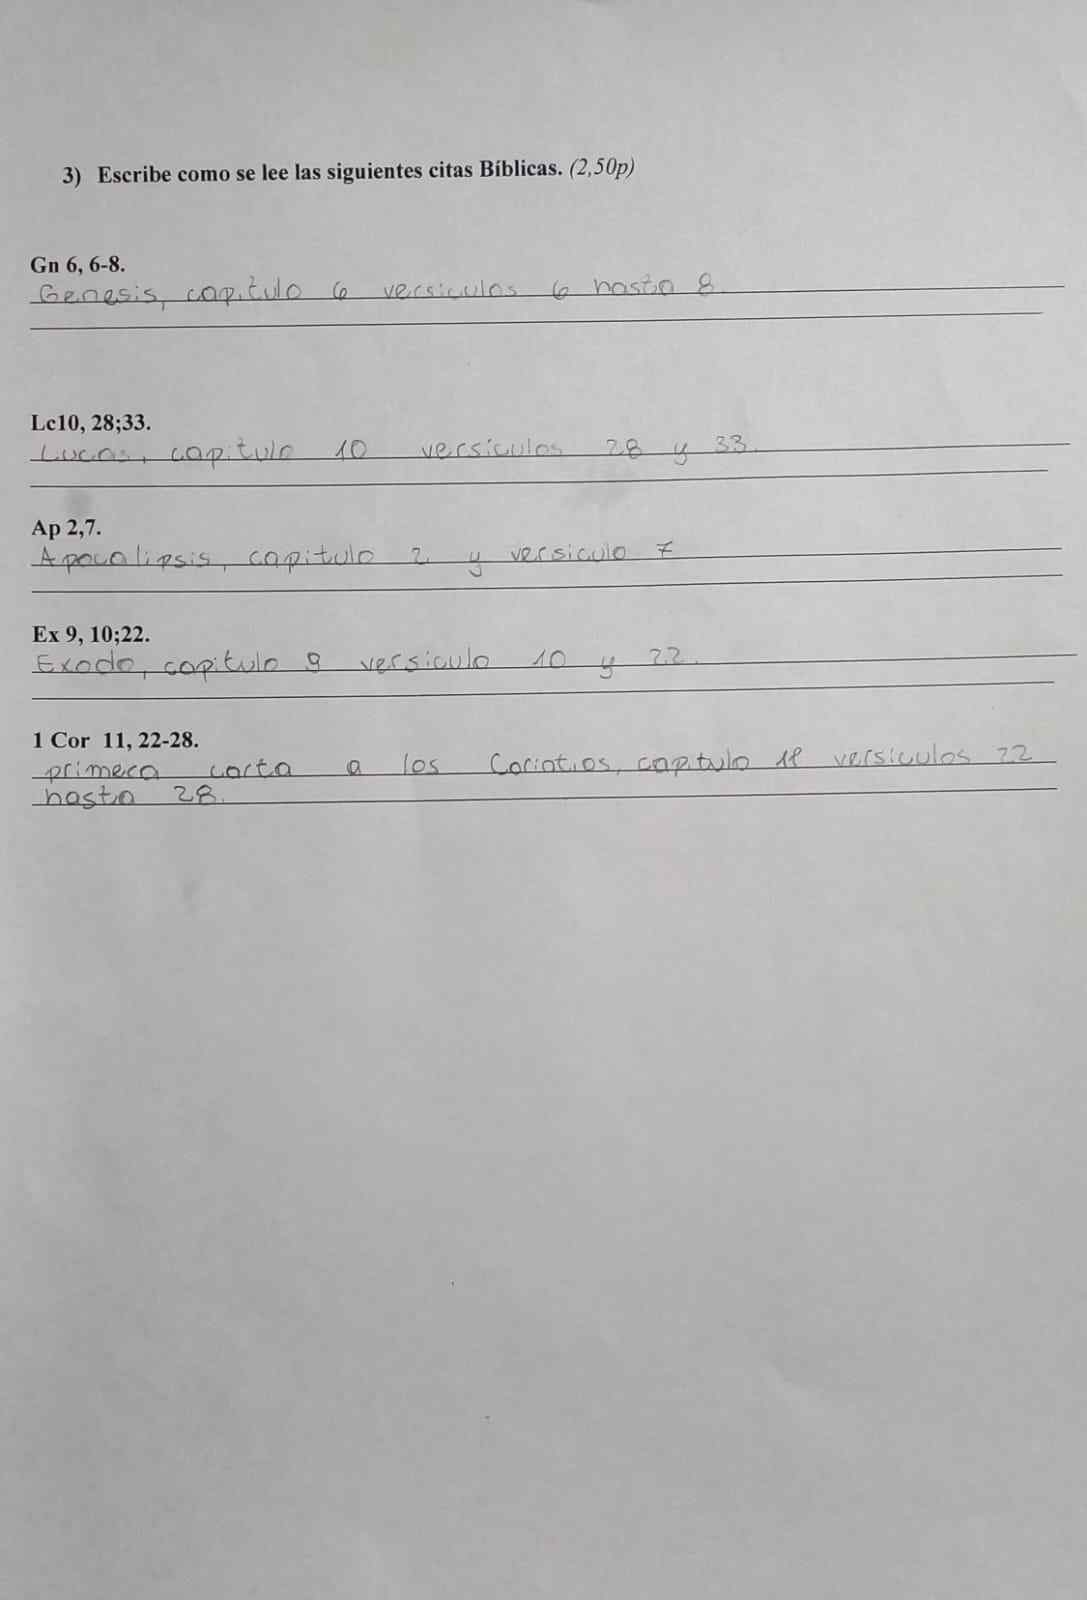 3) Escribe como se lee las siguientes citas Bíblicas. (2,50p)
Gn 6, 6-8.
Genesis, capitulo 6 versiculos 6 hasta 8
Lc10, 28;33.
Lucas, capitulo 10 versiculos 28 y 33.
Ap 2,7.
Apocalipsis, capitulo 2 y versiculo 7
Ex 9, 10;22.
Exodo, capitulo 9 versiculo 10 y 22.
1 Cor 11, 22-28.
primera carta a los Coriotios, capitulo 11 versiculos 22
hasta 28.